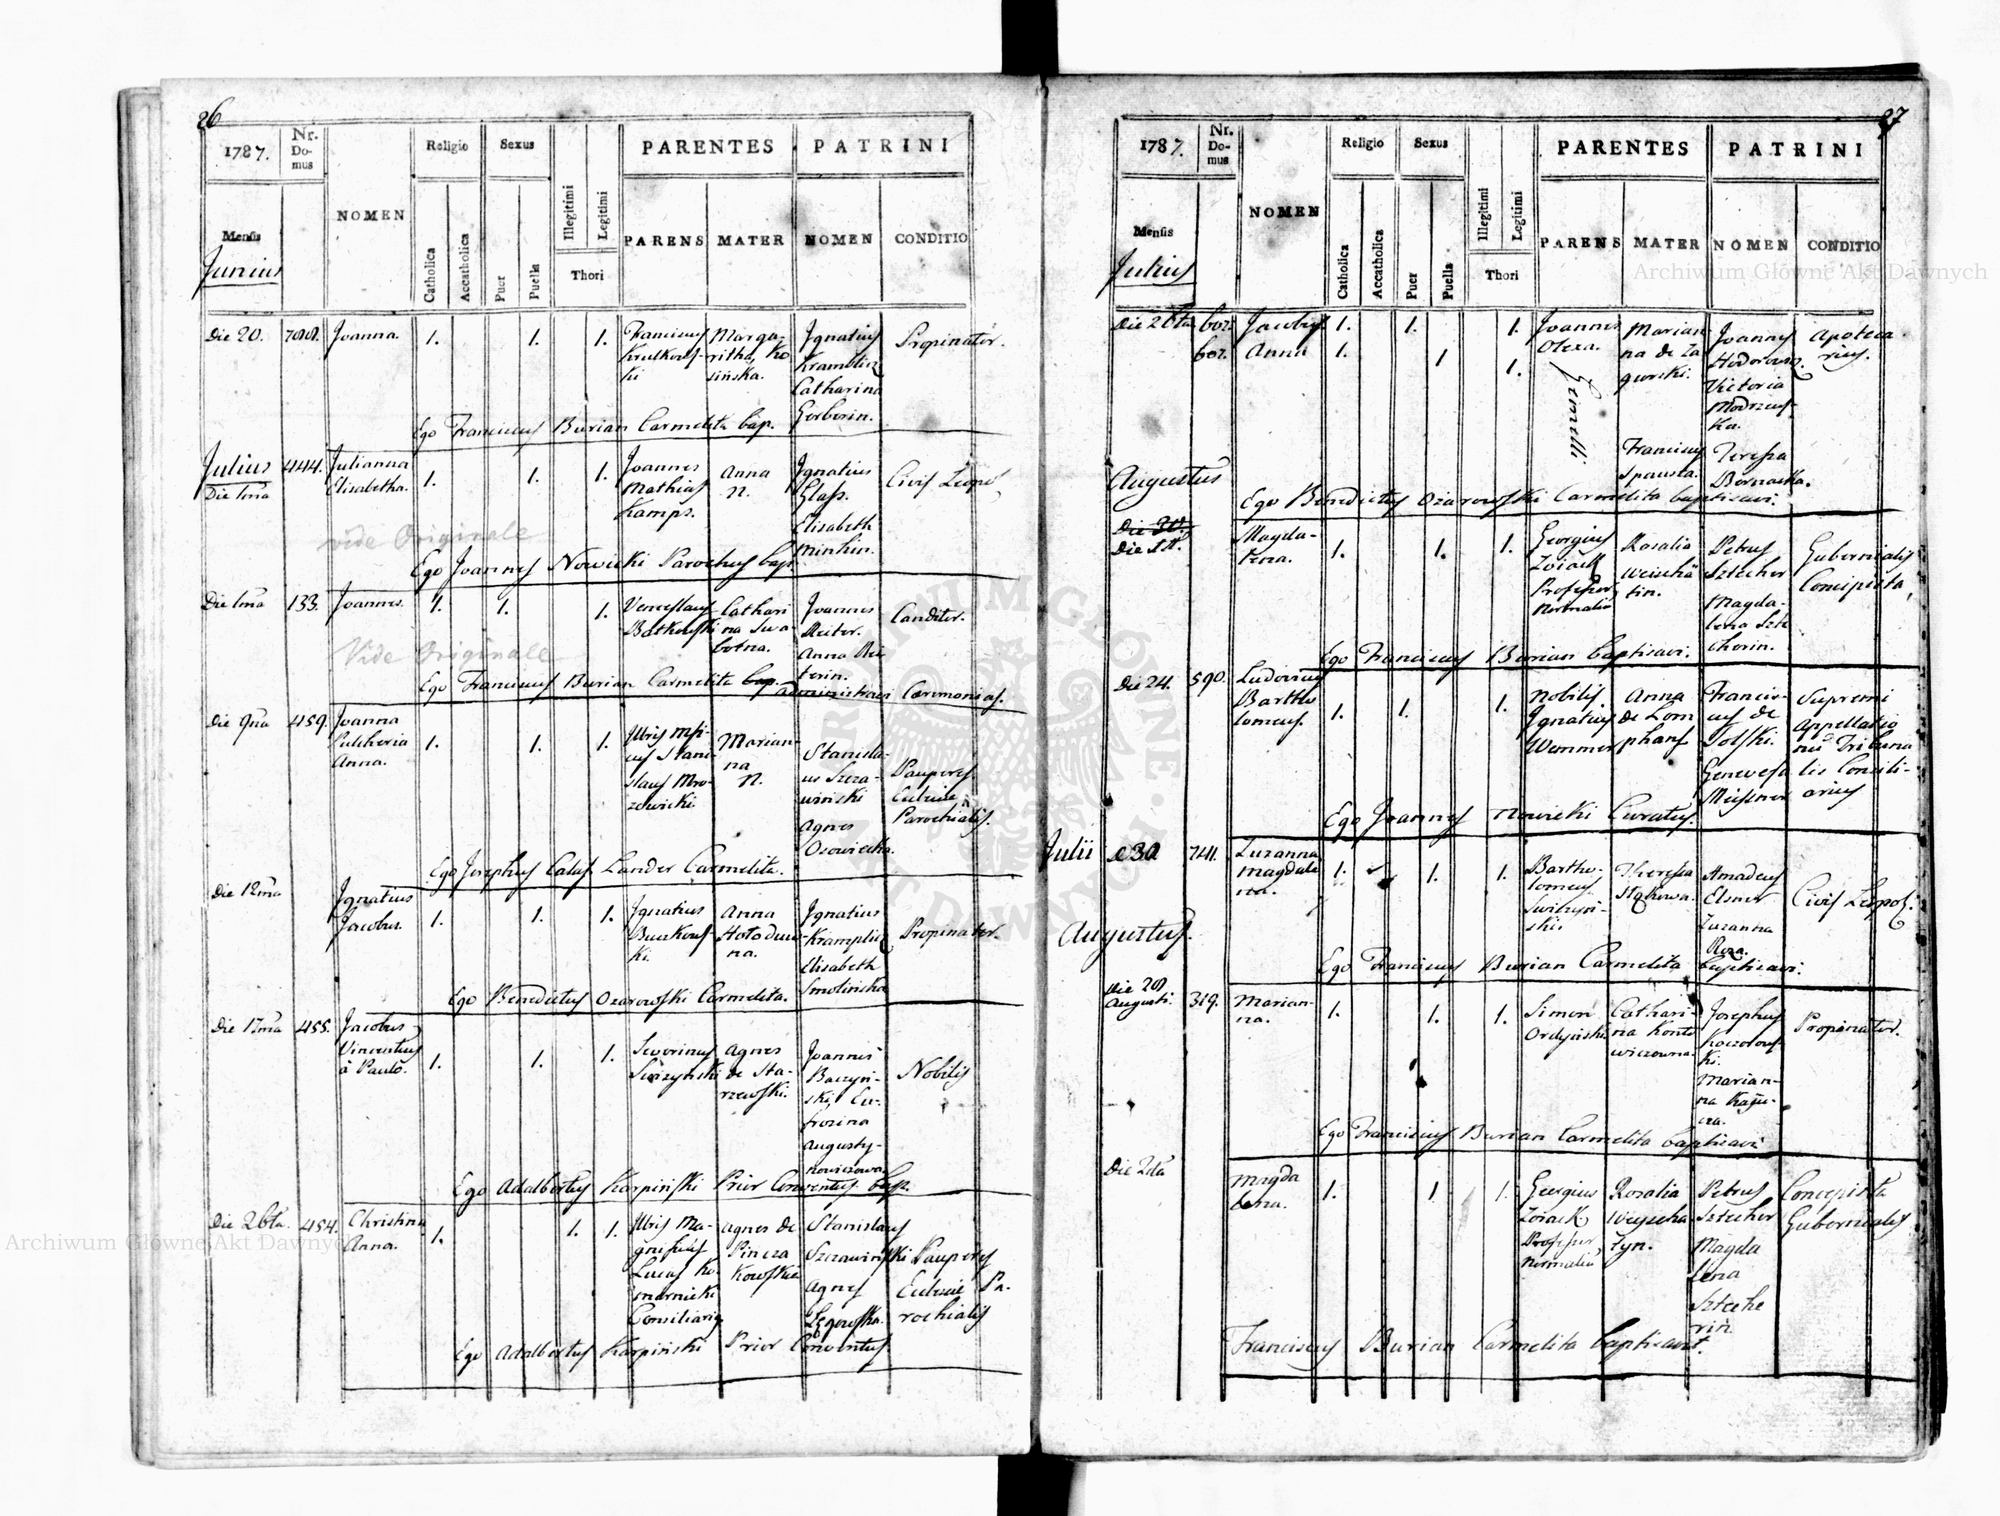 26
1787.
Nr. Domus
NOMEN
Religio
Sexus
PARENTES
PATRINI
Mensis
Junius
Catholica
Accatholica
Puer
Puella
Illegitimi
Legitimi
Thori
PARENS
MATER
NOMEN
CONDITIO
Die 20.
Joanna.
1.
1.
1.
Franciscus
Krulkows-
ki
Marga-
ritha Ko
sińska.
Ignatius
Kramblicz
Catharina
Gerberin.
Propinator.
Ego Franciscus Burian Carmelita bap.
Julius
Die 1ma
444.
Julianna
Elisabetha.
1.
1.
1.
Joannes
Mathias
Kamps.
Anna
N.
Ignatius
Glass.
Elisabeth
Minhin.
Civis Leopo,
vide Originale
Ego Joannes Nowicki Parochus bap.
Die 1ma
133.
Joannes.
1.
1.
1.
Venceslaus
Batkowski
Cathari
na Swa
botna.
Joannes
Reiter.
Anna Rei
terin.
Canditor.
Vide Originale
Ego Franciscus Burian Carmelita bap. administravi Caremonias.
Die 9na
459.
Joanna
Pulcheria
Anna.
1.
1.
1.
Stani
slaus Mro-
zowicki
Marian-
na
N.
Stanisla-
us Szcza-
wiński
Agnes
Osowiecka.
Pauperes
Ecclesiae
Parochialis.
Ego Josephus Calas. Lander Carmelita.
Die 12ma
Ignatius
Jacobus.
1.
1.
1.
Ignatius
Buczkows-
ki.
Anna
Hołodiu-
na.
Ignatius
Kramplicz
Elisabeth
Smolińska
Propinator.
Ego Benedictus Ozarowski Carmelita.
Die 17ma
455.
Jacobus
Vincentius
à Paulo.
1.
1.
1.
Severinus
Swizyński
Agnes
de Sta-
rzewski.
Joannes
Baczyń-
ski, Eu-
frozina
Augusty-
nowiczowa
Nobilis
Ego Adalbertus Karpiński Prior Conventus bap.
Die 26ta.
454.
Christina
Anna.
1.
1.
1.
Illris Ma-
gnificus
Lucas Ko-
marnicki
Consiliarius
Agnes de
Pincza
kowskie
Stanislaus
Szczawiński
Agnes
Łęgowska.
Pauperes
Ecclesiae Pa-
rochialis
Ego Adalbertus Karpiński Prior Conventus.
27
1787.
Nr. Domus
NOMEN
Religio
Sexus
PARENTES
PATRINI
Mensis
Julius
Catholica
Accatholica
Puer
Puella
Illegitimi
Legitimi
Thori
PARENS
MATER
NOMEN
CONDITIO
Die 26ta
602.
602.
Jacobus.
Anna
1.
1.
1.
1
1.
1.
Joannes
Olexa.
Gemelli
Marian-
na de Za
gurski.
Joannes
Hodorowicz.
Victoria
Modrzews-
ka.
Apoteca
rius.
Franciscus
Spausta.
Teressa
Bernacka.
Ego Benedictus Ozarowski Carmelita baptisavi.
Augustus
Die 30.
Magda-
lena.
1.
1.
1.
Georgius
Zoiack
Professor
Normalis
Rosalia
Weischä
tin.
Petrus
Sztecher
Magda-
lena Szte
cherin.
Gubernialis
Concipista,
Ego Franciscus Burian baptisavi.
Die 24.
590.
Ludovicus
Bartho
lomeus.
1.
1.
1.
Nobilis.
Ignatius
Wemmer
Anna
de Lom
phans
Francis-
cus de
Solski.
Genovefa
Meissner
Supremi
Appellatio
nu Tribuna
lis Consili-
arius
Ego Joannes Nowicki Curatus.
Julii
30
7411.
Zuzanna
Magdale
na.
1.
1.
1.
Bartho-
lomeus
Swirzyń-
ski.
Theressa
Amadeus
Elsner
Zuzanna
Roza.
Civis Leopol.
Ego Franciscus Burian Carmelita baptisavi.
Augustus.
Die 20
Augusti.
319.
Marian-
na.
1.
1.
1.
Simon
Ordyński
Cathari-
na Konto
wiczowna.
Josephus
Koczolows-
ki.
Marian-
na Kaju-
cza.
Propinator.
Ego Franciscus Burian Carmelita baptisavi
Die 2da
Magda
lena.
1.
1
1.
Georgius
Zoiack
Professor
Normalis
Rosalia
Weyscha
tyn.
Petrus
Sztecher
Magda
lena
Szteche
rin.
Concepista
Gubernialis
Franciscus Burian Carmelita baptisavit.
Archiwum Główne Akt Dawnych
Archiwum Główne Akt Dawnych
ARCHIWUM GŁÓWNE · AKT DAWNYCH ·